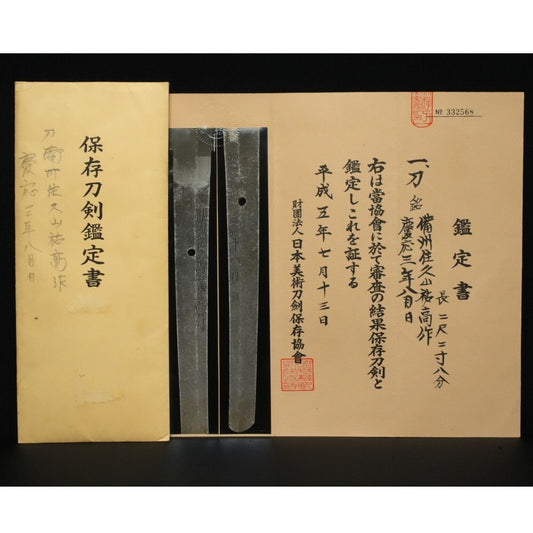 保存刀剣鑑定書
刀 備州住久山祐高作
慶応三年八月日
№ 332568
鑑定書
一、刀 銘 備州住久山祐高作
慶応三年八月日
長 二尺二寸八分
右は當協會に於て審査の結果保存刀剣と
鑑定しこれを証する
平成五年七月十三日
財團法人 日本美術刀劍保存協會